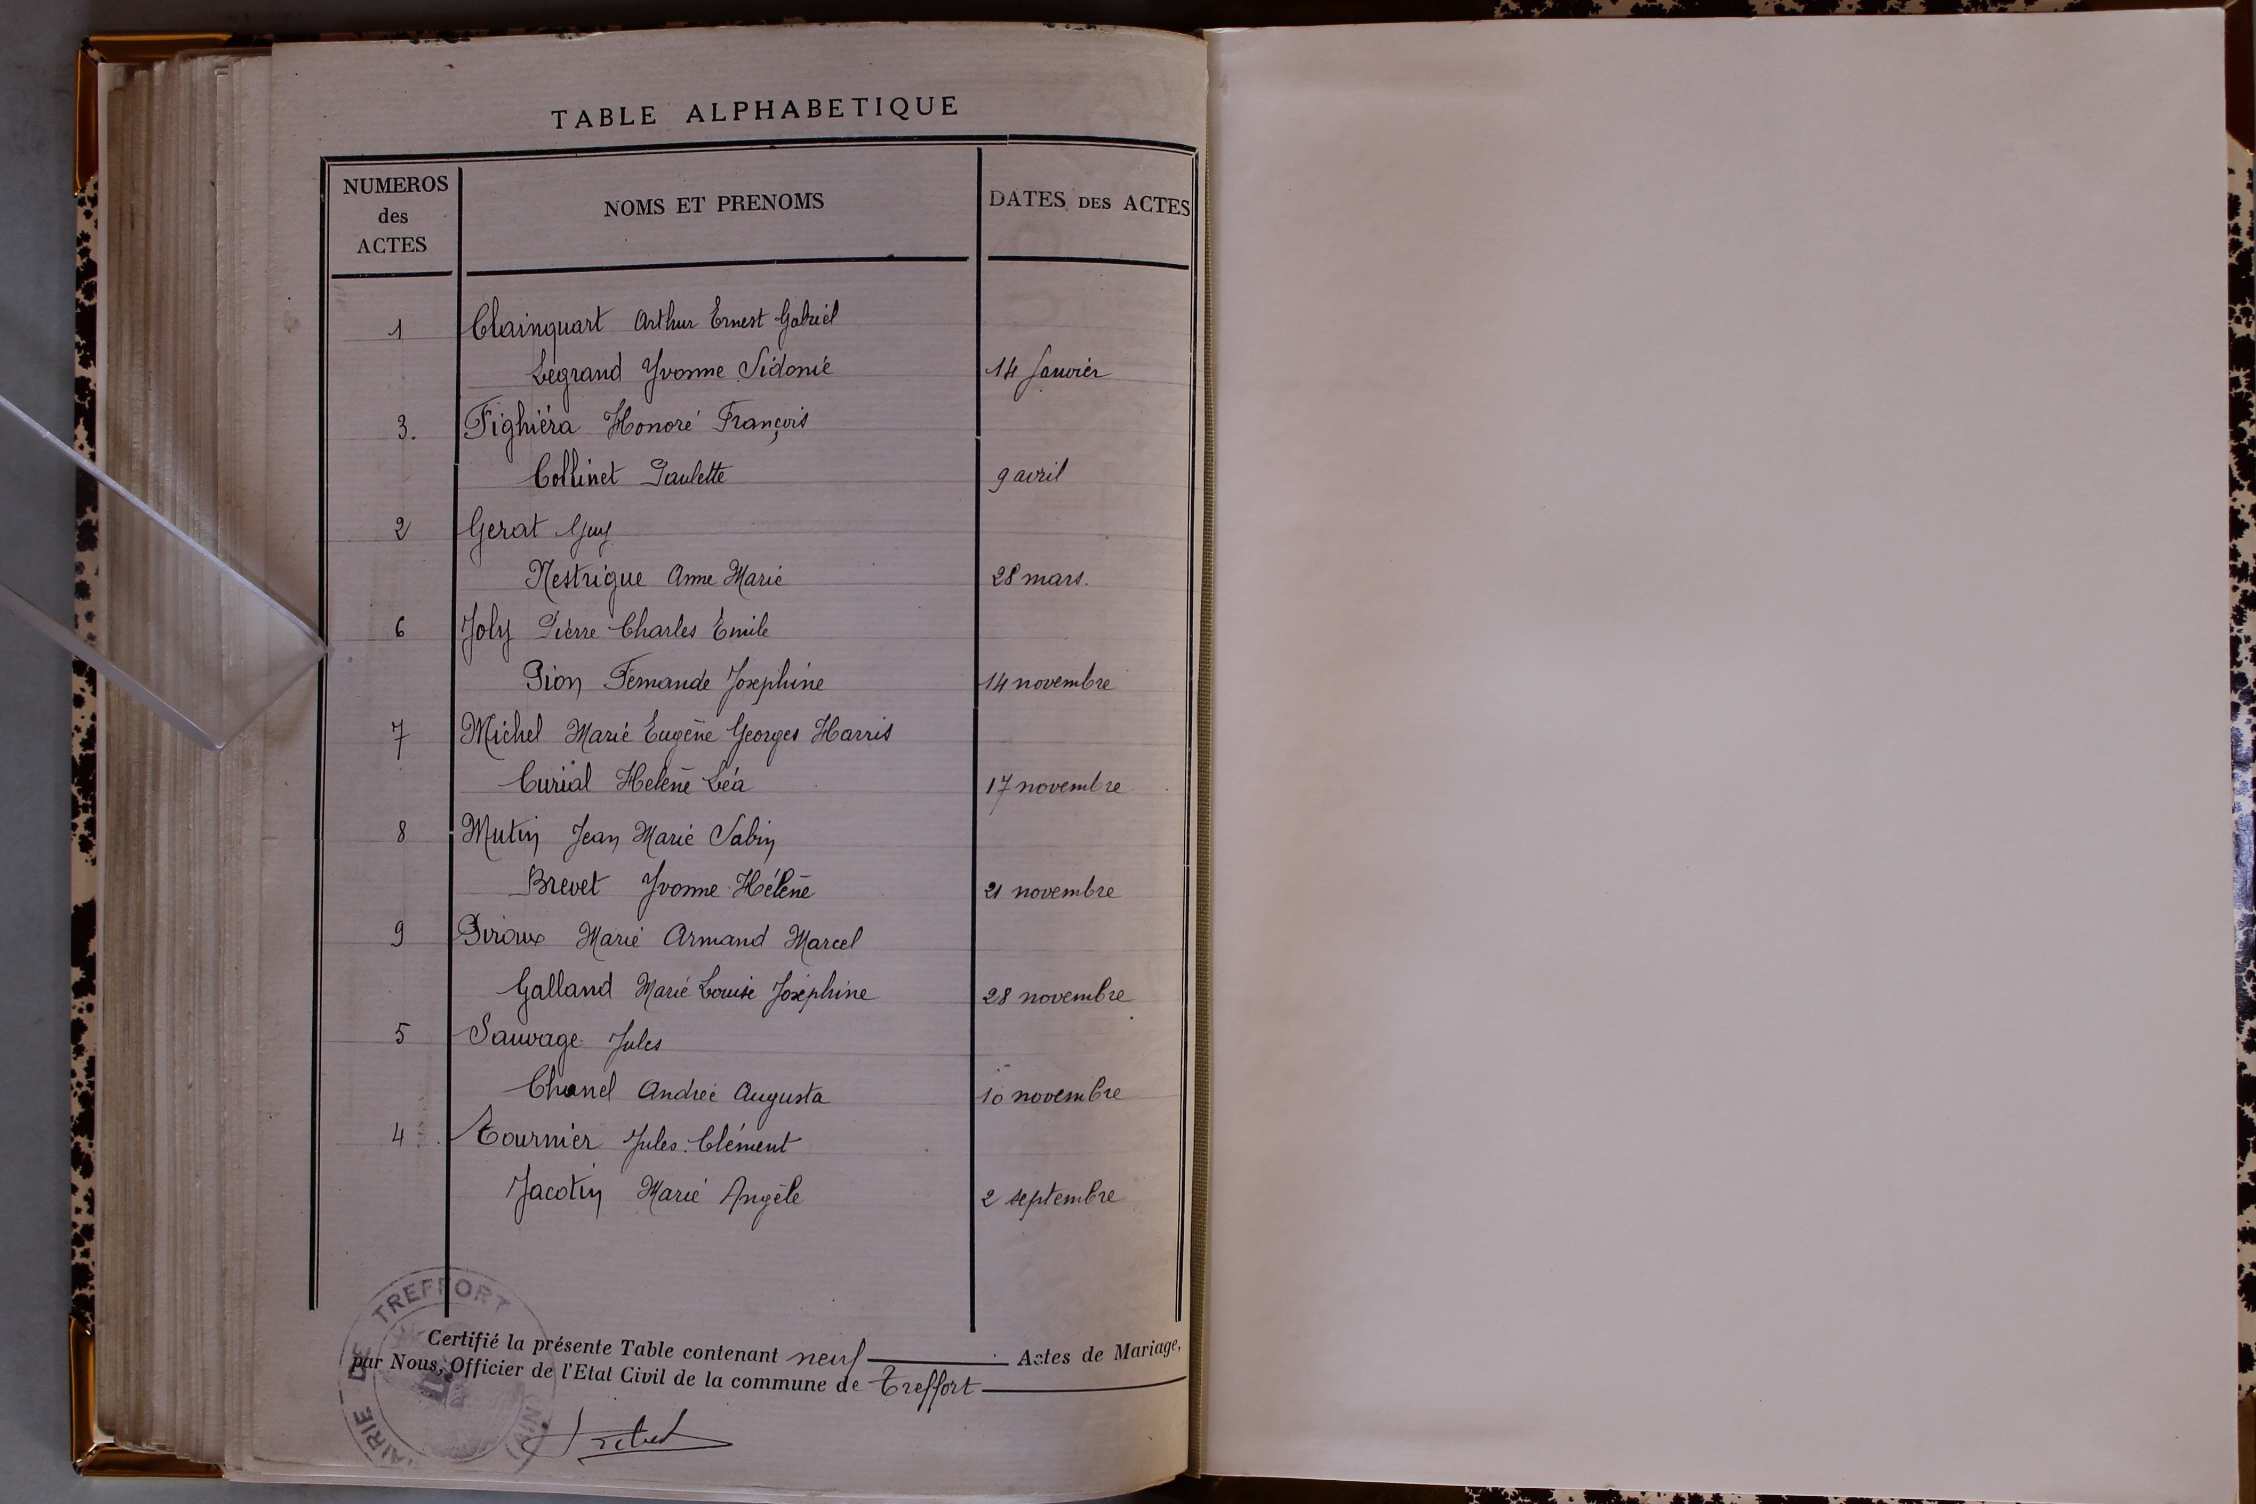 TABLE ALPHABETIQUE
NUMEROS des ACTES NOMS ET PRENOMS DATES DES ACTES
1 Clainquart Arthur Ernest Gabriel
Legrand Yvonne Sidonie 14 Janvier
3. Fighiéra Honoré François
Collinet Paulette 9 avril
2 Gerat Guy
Nestrigue Anne Marie 28 mars.
6 Joly Pierre Charles Emile
Pion Fernande Josephine 14 novembre
7 Michel Marie Eugène Georges Harris
Curial Helène Léa 17 novembre
8 Mutin Jean Marie Sabin
Brevet Yvonne Hélène 21 novembre
9 Piroux Marie Armand Marcel
Galland Marie Louise Joséphine 28 novembre
5 Sauvage Jules
Chanel Andrée Augusta 10 novembre
4 Tournier Jules Clément
Jacotin Marie Angèle 2 septembre
Certifié la présente Table contenant neuf Actes de Mariage,
par Nous, Officier de l'Etat Civil de la commune de Treffort
MAIRIE DE TREFFORT (AIN)